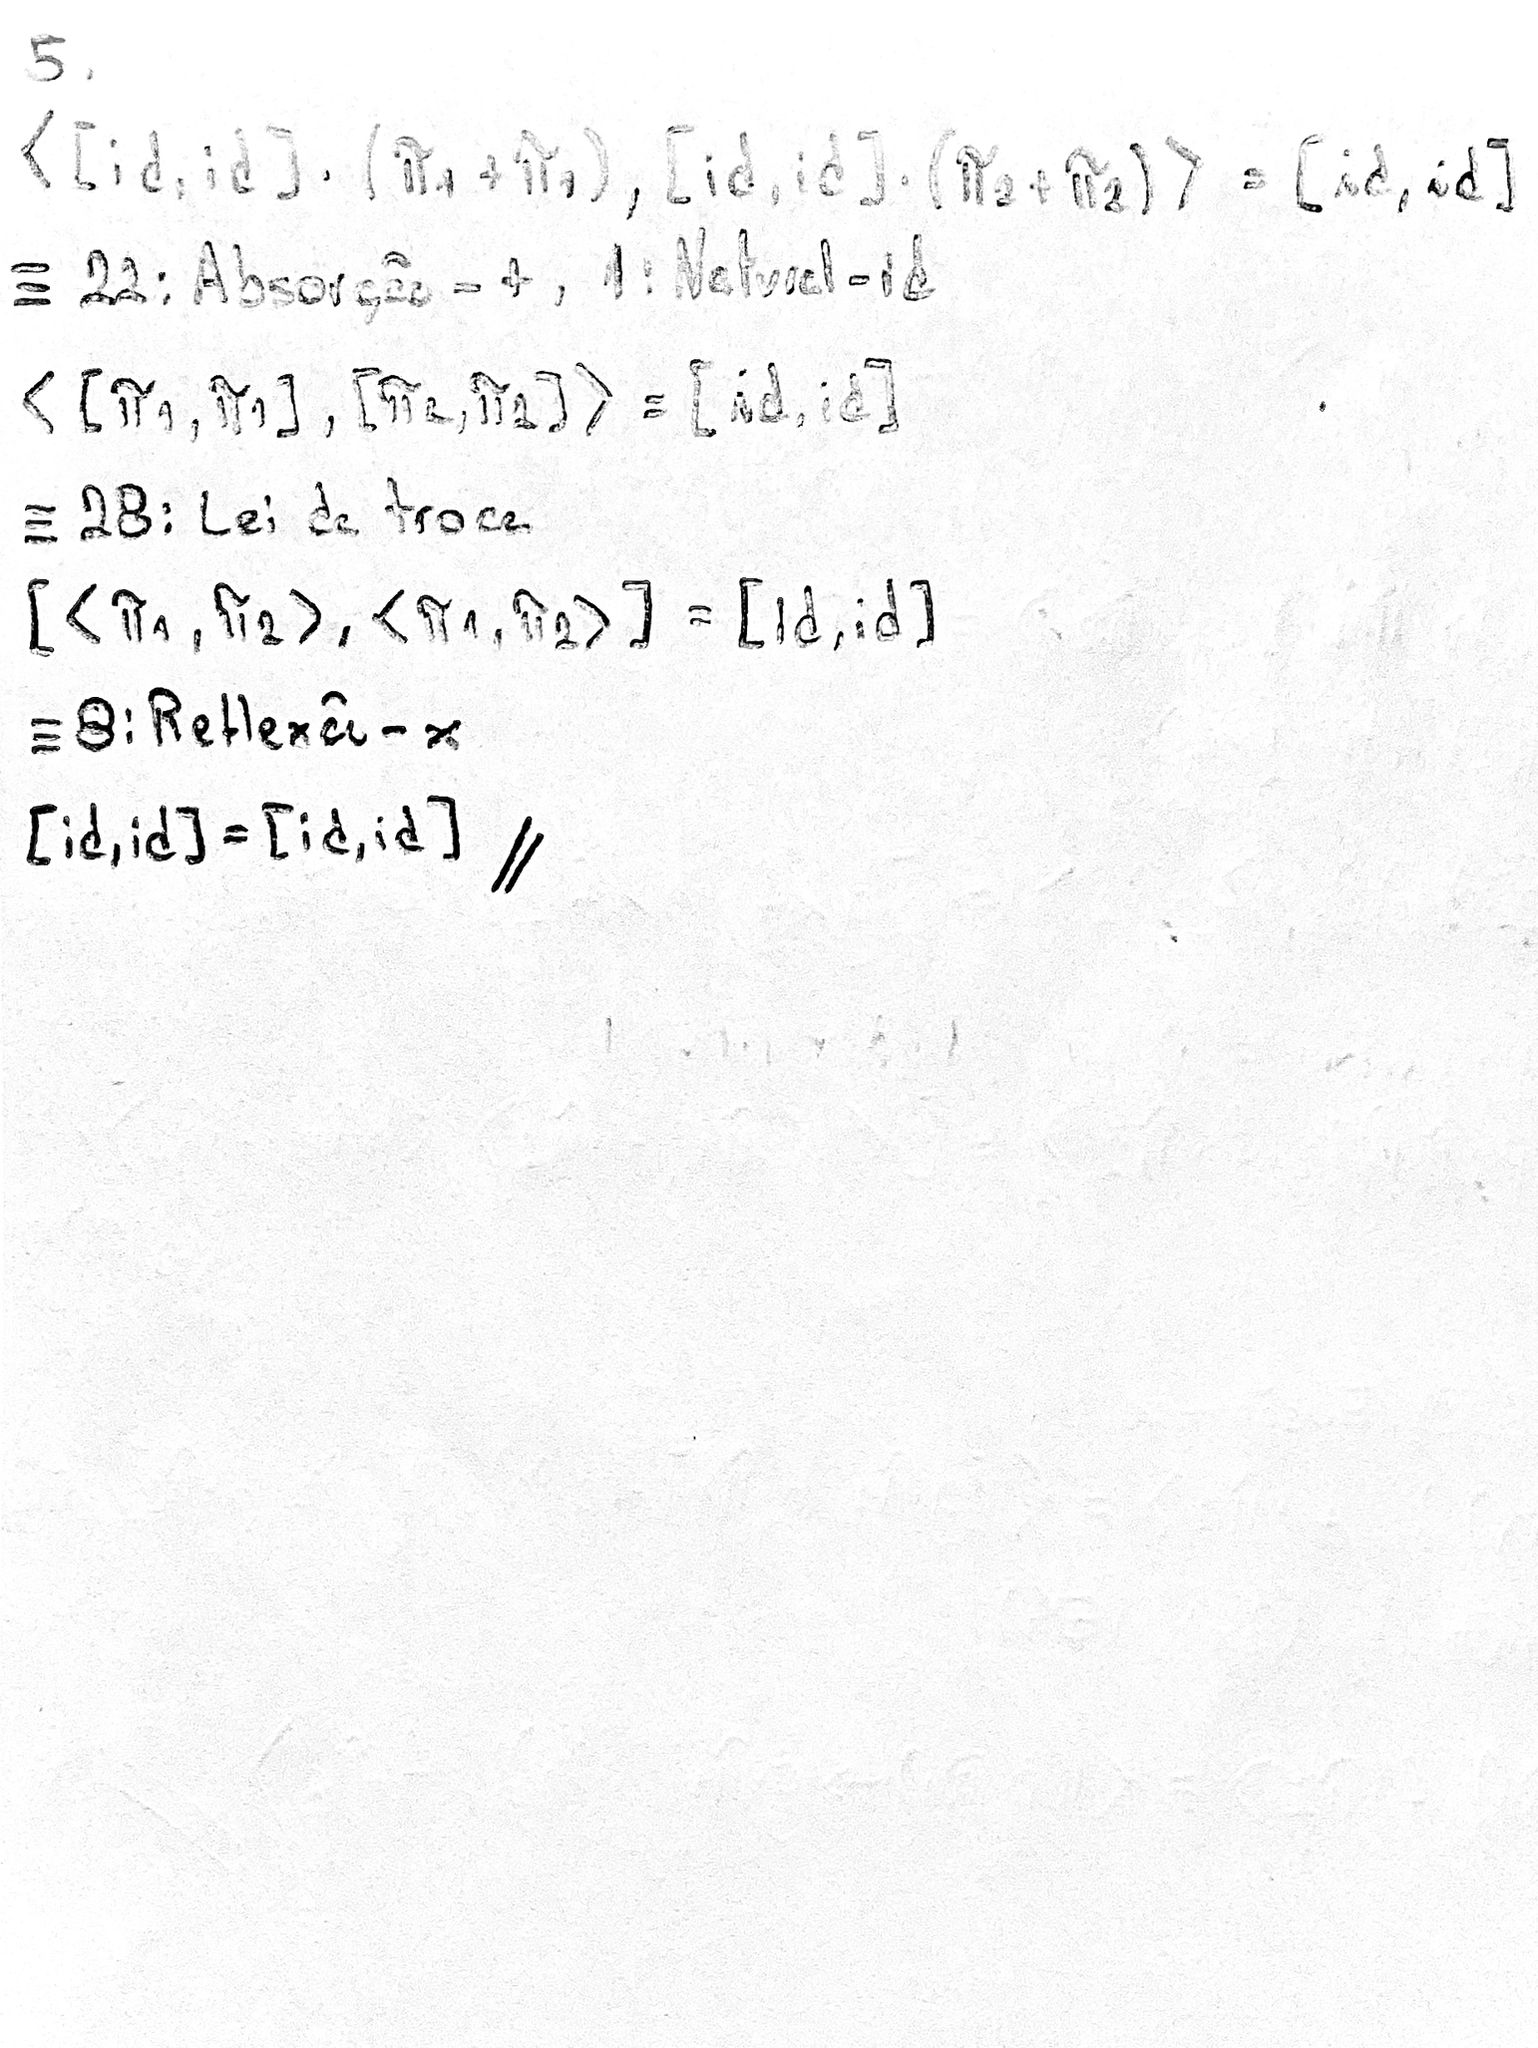 5.
<[id,id]·(π₁+π₁),[id,id]·(π₂+π₂)> = [id,id]
≡ 22: Absorção-+, 1: Natural-id
<[π₁,π₁],[π₂,π₂]> = [id,id]
≡ 28: Lei da troca
[<π₁,π₂>,<π₁,π₂>] = [id,id]
≡ 8: Reflexão-x
[id,id] = [id,id] //